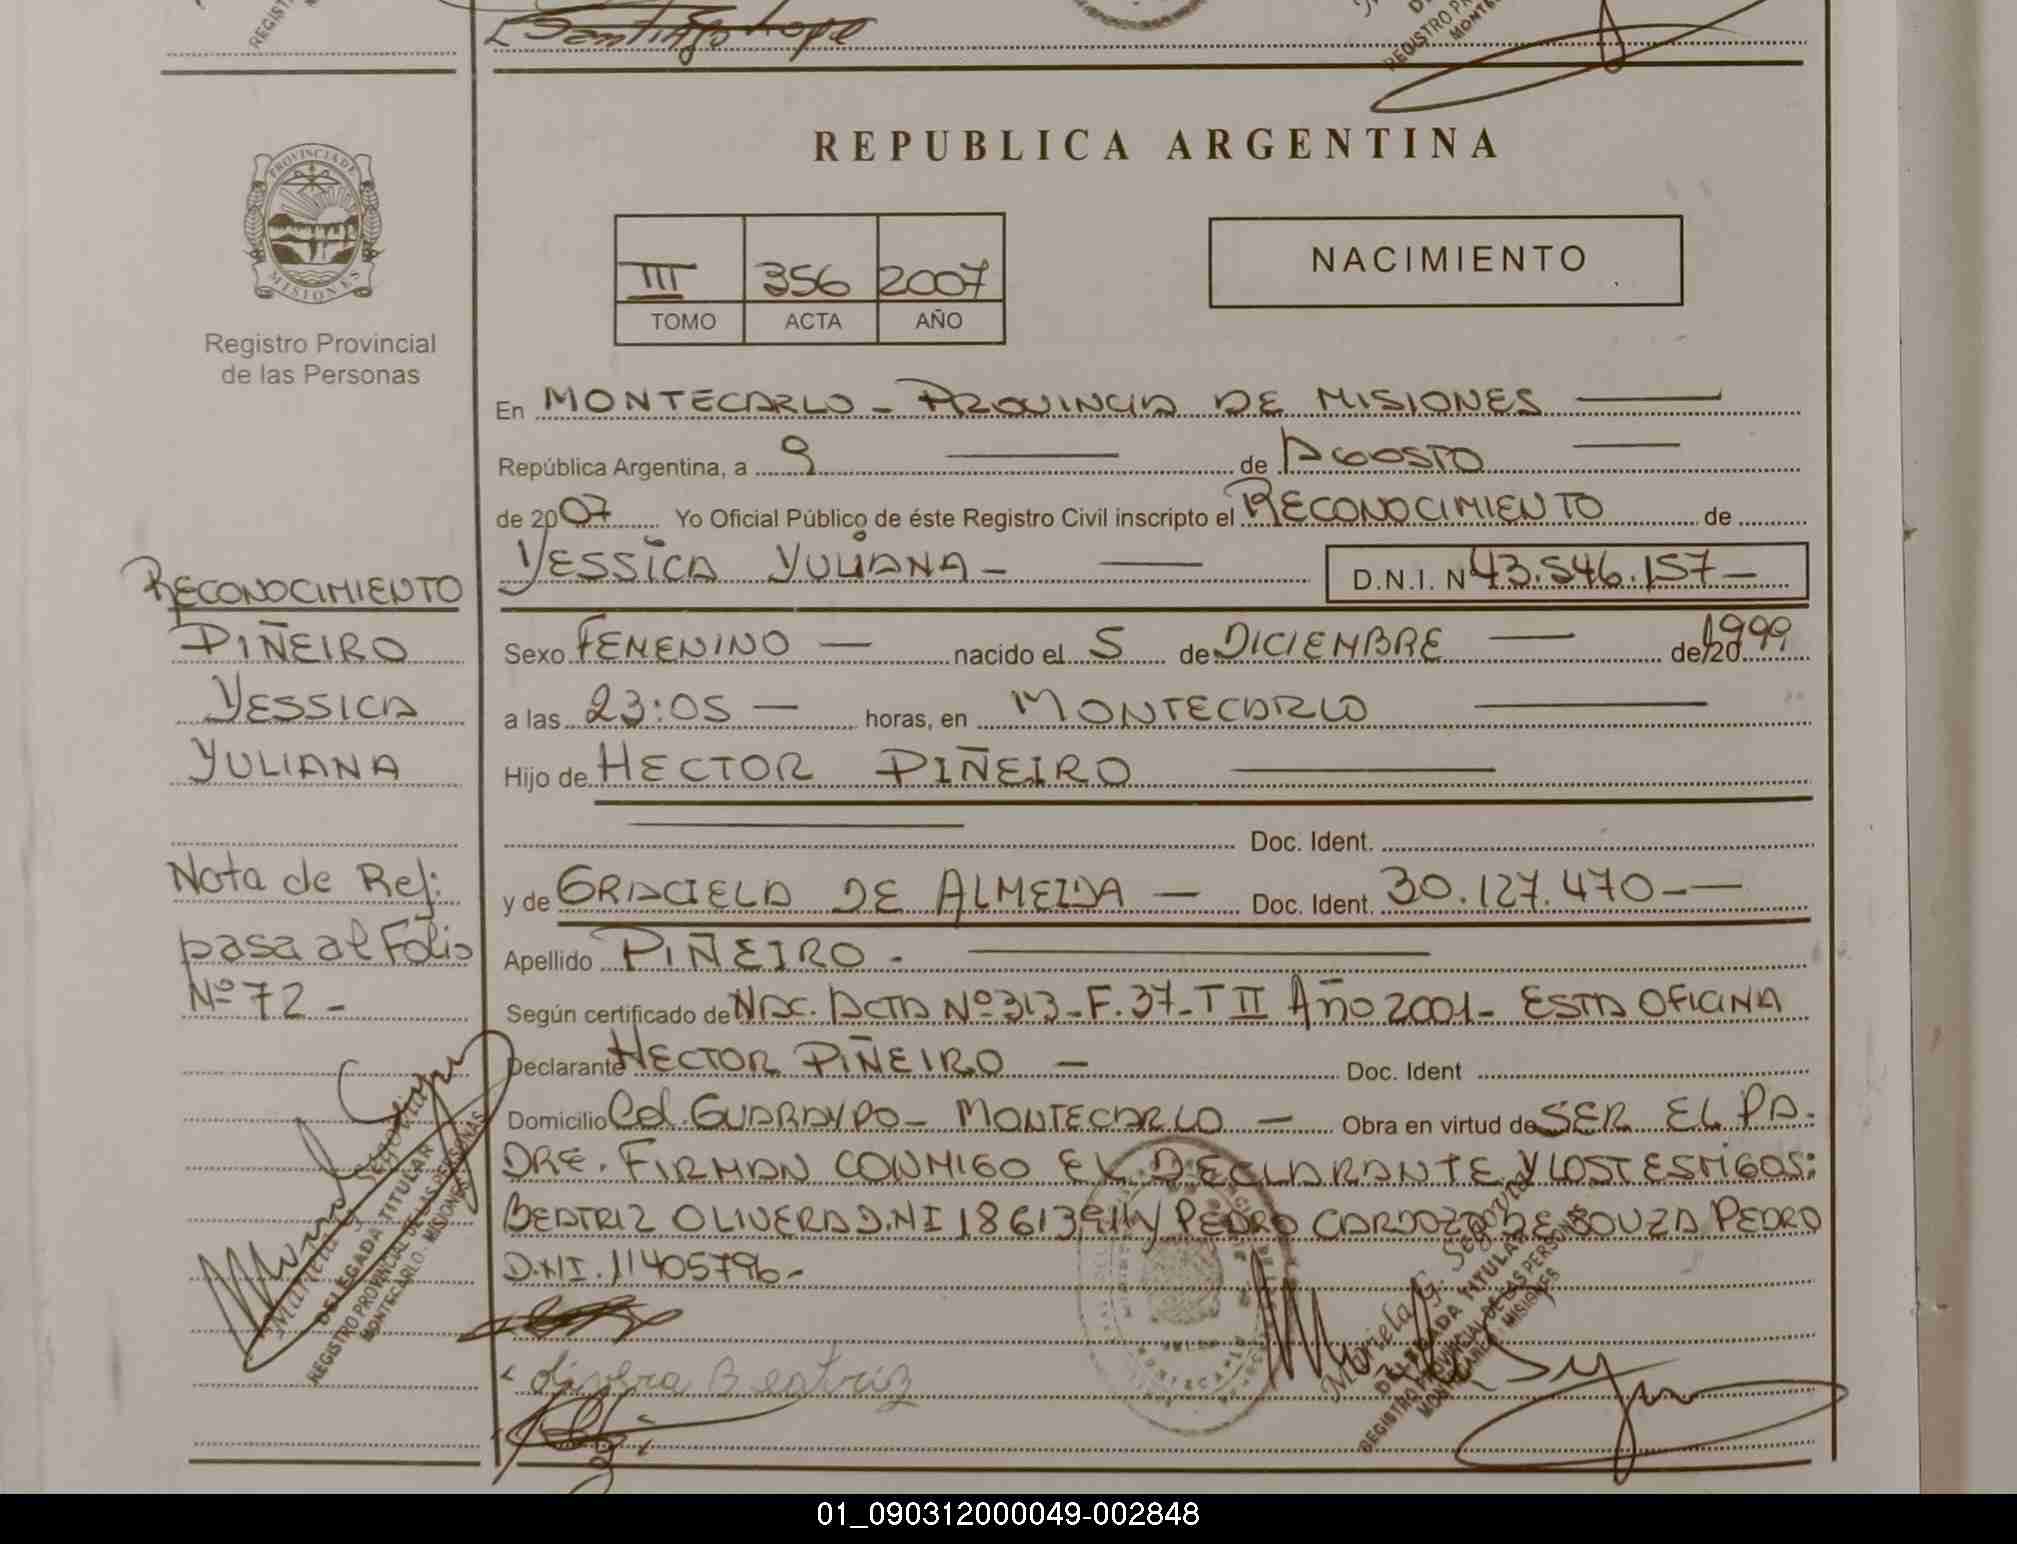 REPUBLICA ARGENTINA
PROVINCIA DE
MISIONES
Registro Provincial
de las Personas
III 356 2007
TOMO ACTA AÑO
NACIMIENTO
En MONTECARLO - PROVINCIA DE MISIONES
República Argentina, a 9 de AGOSTO
de 2007 Yo Oficial Público de éste Registro Civil inscripto el RECONOCIMIENTO de
YESSICA YULIANA - D.N.I. N 43.546.157-
RECONOCIMIENTO
PIÑEIRO
YESSICA
YULIANA
Nota de Ref:
pasa al Folio
Nº 72 -
Sexo FEMENINO nacido el 5 de DICIEMBRE de 1999
a las 23:05 horas, en MONTECARLO
Hijo de HECTOR PIÑEIRO
Doc. Ident.
y de GRACIELA DE ALMEIDA Doc. Ident. 30.127.470-
Apellido PIÑEIRO -
Según certificado de NAC. ACTA Nº 313 - F. 37 - T II Año 2001 - ESTA OFICINA
Declarante HECTOR PIÑEIRO - Doc. Ident
Domicilio Col. GUARAYPO - MONTECARLO - Obra en virtud de SER EL PA-
DRE. FIRMAN CONMIGO EL DECLARANTE Y LOS TESTIGOS:
BEATRIZ OLIVERA D.NI 18613911 y PEDRO CARDOZO DE SOUZA PEDRO
D.NI. 11405796-
Olivera Beatriz
Mariela G. Segovia
DELEGADA TITULAR
REGISTRO PROVINCIAL DE LAS PERSONAS
MONTECARLO - MISIONES
Mariela G. Segovia
DELEGADA TITULAR
REGISTRO PROVINCIAL DE LAS PERSONAS
MONTECARLO - MISIONES
01_090312000049-002848